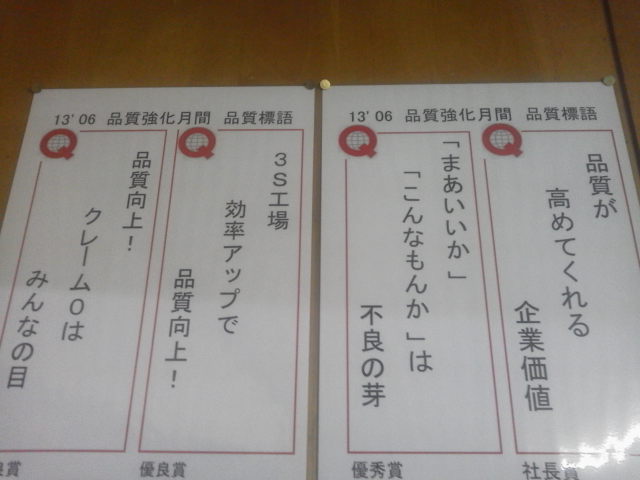 13' 06 品質強化月間 品質標語
品質が
高めてくれる
企業価値
社長賞
「まあいいか」
「こんなもんか」は
不良の芽
優秀賞
13' 06 品質強化月間 品質標語
3S工場
効率アップで
品質向上!
優良賞
品質向上!
クレーム0は
みんなの目
良賞